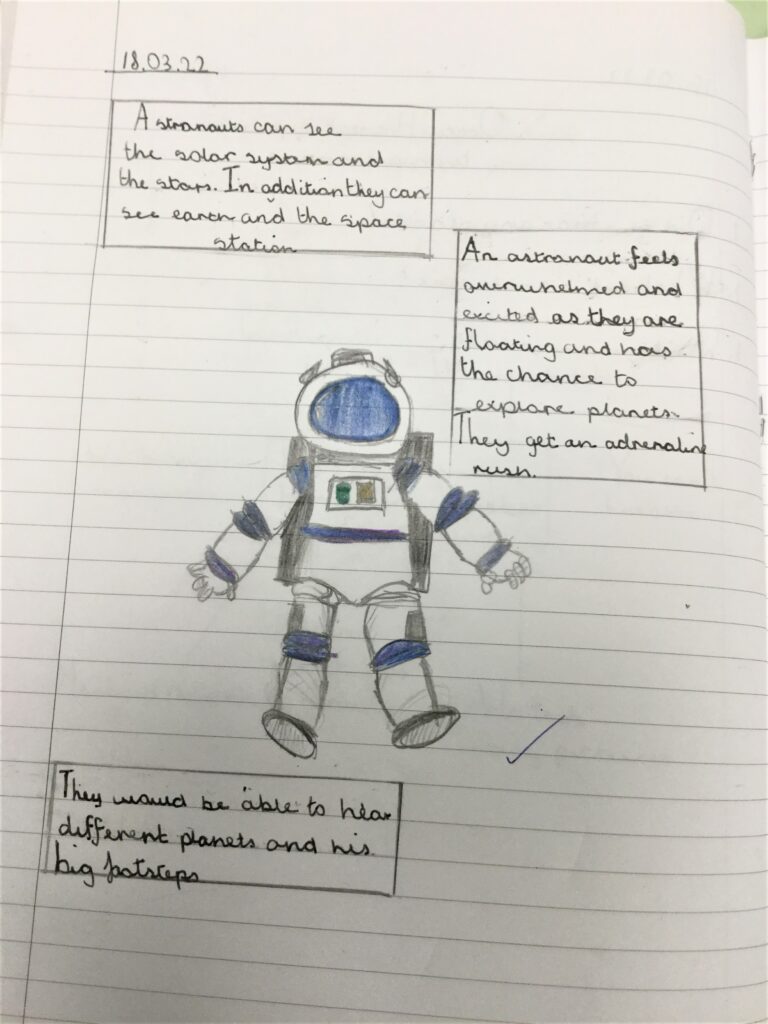 18.03.22
Astranauts can see
the solar system and
the stars. In addition they can
see earth and the space
station
An astranaut feels
overwhelmed and
excited as they are
floating and has
the chance to
explore planets.
They get an adrenaline
rush.
They would be able to hear
different planets and his
big footsteps